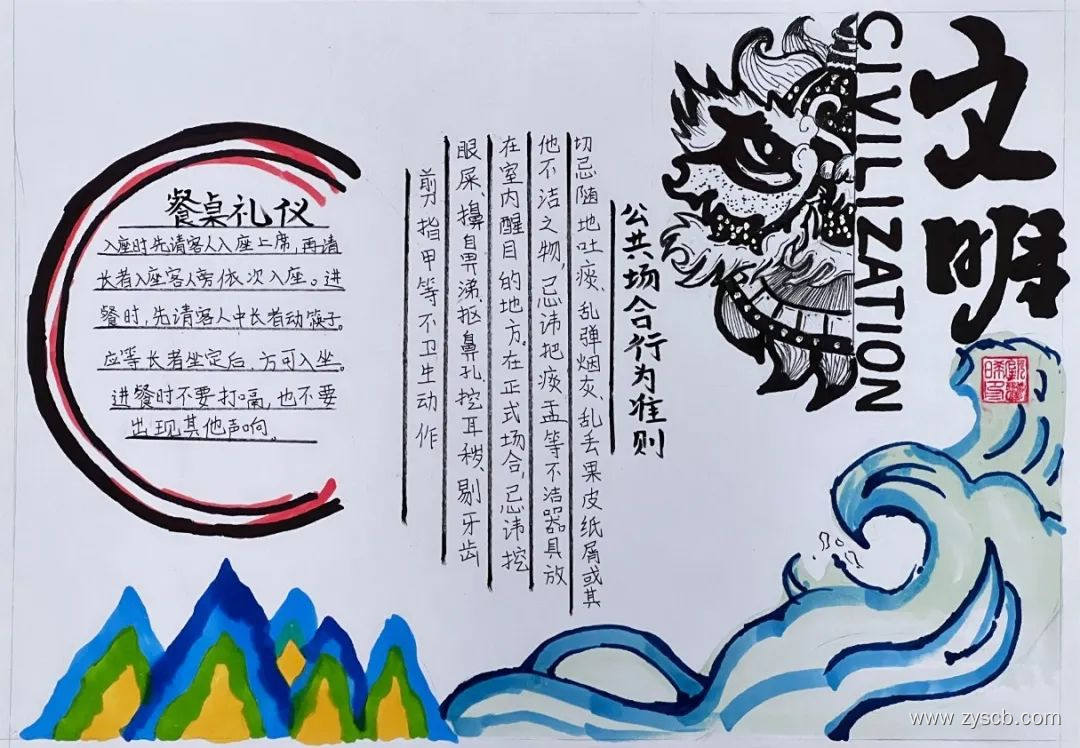 文明
CIVILIZATION
公共场合行为准则
切忌随地吐痰、乱弹烟灰、乱丢果皮纸屑或其
他不洁之物,忌讳把痰盂等不洁器具放
在室内醒目的地方。在正式场合,忌讳挖
眼屎、擤自畀涕、抠鼻孔、挖耳秽、剔牙齿
剪指甲等不卫生动作
餐桌礼仪
入座时先请客人入座上席,再请
长者入座客人旁依次入座。进
餐时,先请客人中长者动筷子。
应等长者坐定后,方可入坐。
进餐时不要打嗝,也不要
出现其他声响。
www.zyscb.com